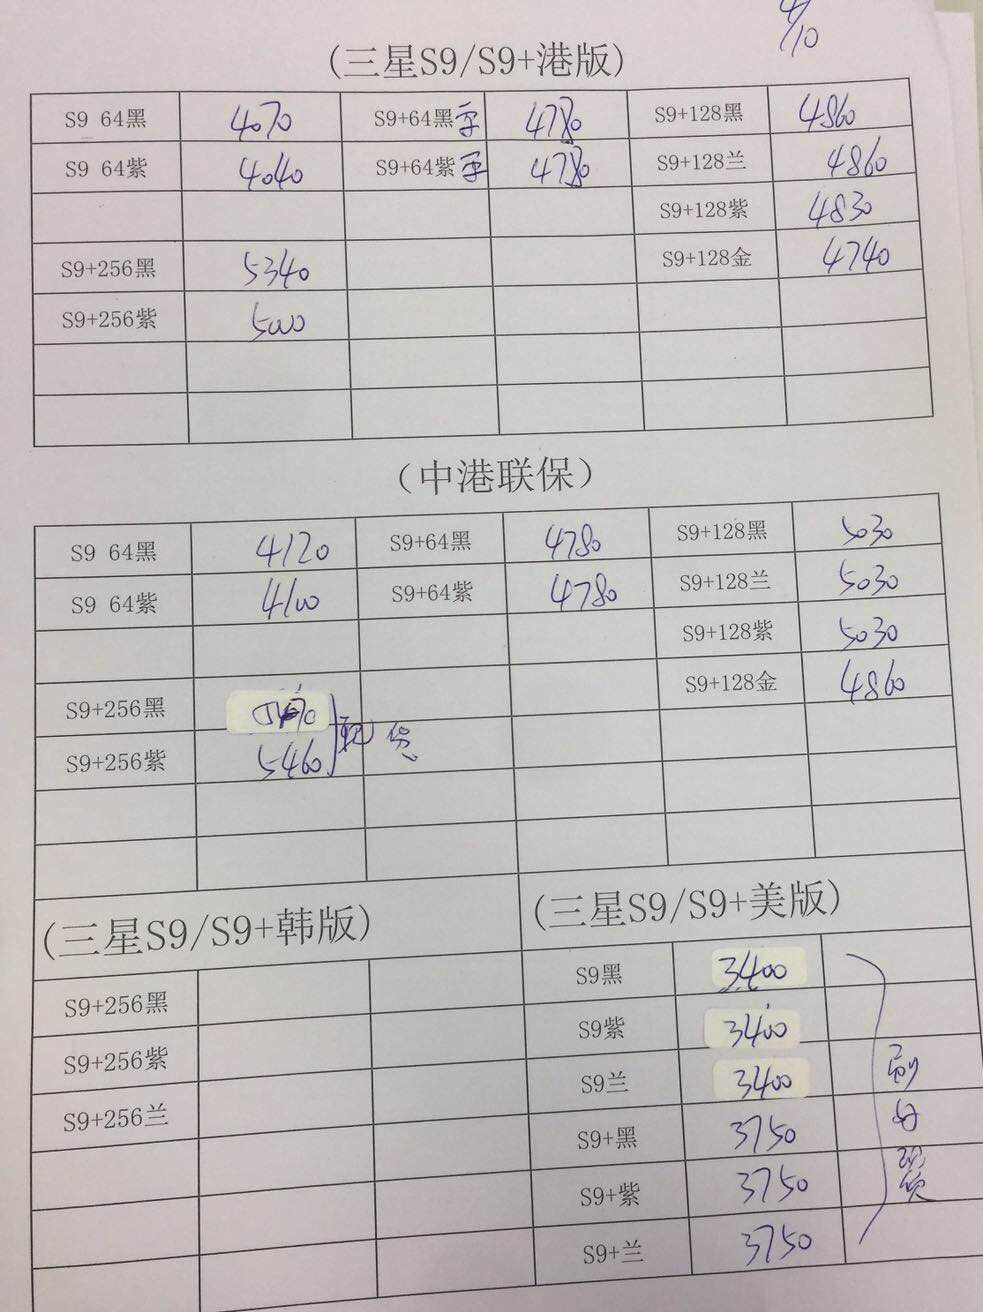 4/10
(三星S9/S9+港版)
S9 64黑 4070 S9+64黑 4780 S9+128黑 4860
S9 64紫 4040 S9+64紫 4780 S9+128兰 4860
S9+128紫 4830
S9+256黑 5340 S9+128金 4740
S9+256紫 5000
(中港联保)
S9 64黑 4120 S9+64黑 4780 S9+128黑 5030
S9 64紫 4100 S9+64紫 4780 S9+128兰 5030
S9+128紫 5030
S9+256黑 S9+128金 4860
S9+256紫 5460 现货
(三星S9/S9+韩版) (三星S9/S9+美版)
S9+256黑 S9黑 3400
S9+256紫 S9紫 3400
S9+256兰 S9兰 3400
S9+黑 3750
S9+紫 3750
S9+兰 3750